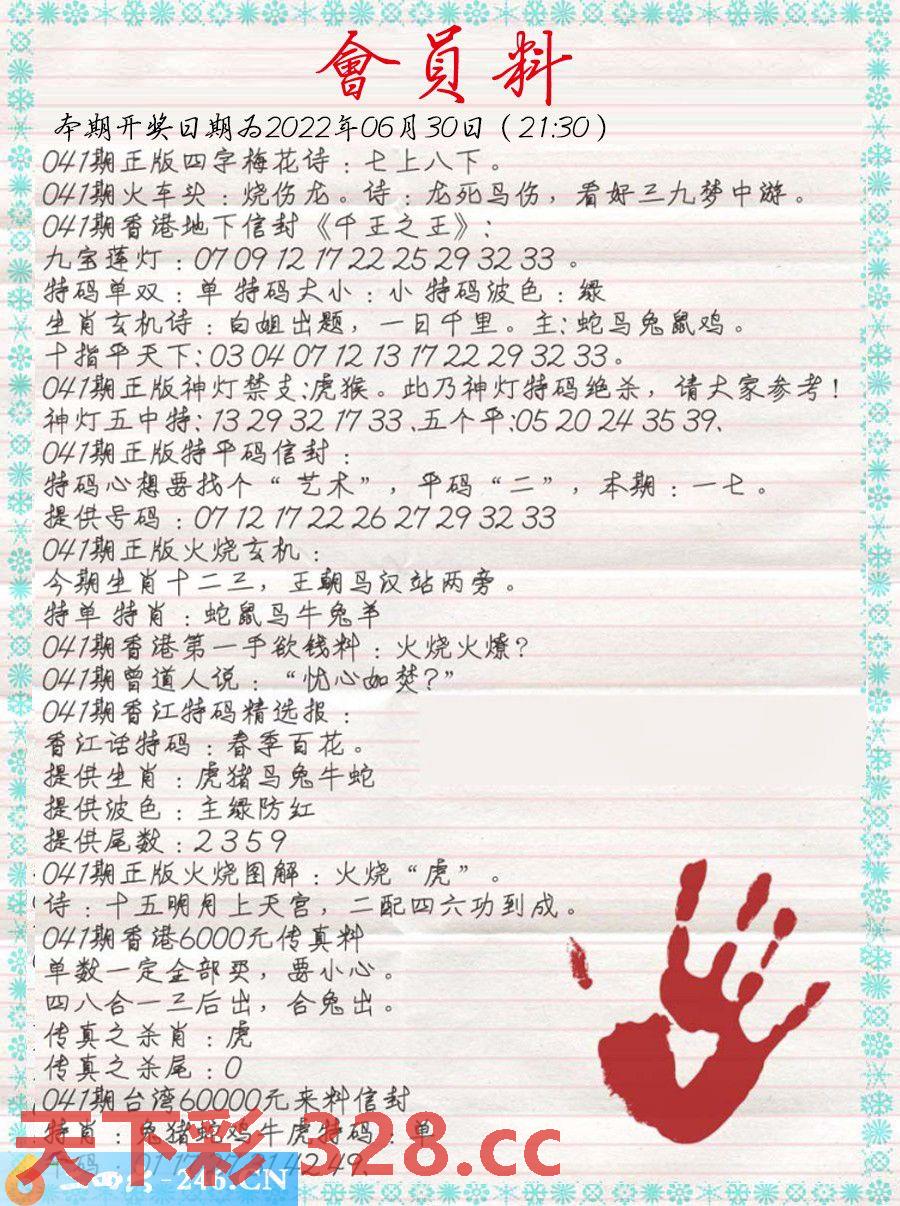 會員料
本期开奖日期为2022年06月30日（21:30）
041期正版四字梅花诗：七上八下。
041期火车头：烧伤龙。诗：龙死鸟伤，看好三九梦中游。
041期香港地下信封《千王之王》:
九宝莲灯：07 09 12 17 22 25 29 32 33 。
特码单双：单 特码大小：小 特码波色：绿
生肖玄机诗：白姐出题，一日千里。主:蛇马兔鼠鸡。
十指平天下:03 04 07 12 13 17 22 29 32 33。
041期正版神灯禁支:虎猴。此乃神灯特码绝杀，请大家参考！
神灯五中特: 13 29 32 17 33 .五个平:05 20 24 35 39.
041期正版特平码信封：
特码心想要找个“艺术”，平码“二”，本期：一七。
提供号码：07 12 17 22 26 27 29 32 33
041期正版火烧玄机：
今期生肖十二三，王朝马汉站两旁。
特单 特肖：蛇鼠马牛兔羊
041期香港第一手欲钱料：火烧火燎?
041期曾道人说：“忧心如焚?”
041期香江特码精选报：
香江话特码：春季百花。
提供生肖：虎猪马兔牛蛇
提供波色：主绿防红
提供尾数：2 3 5 9
041期正版火烧图解：火烧“虎”。
诗：十五明月上天宫，二配四六功到成。
041期香港6000元传真料
单数一定全部买，要小心。
四八合一三后出，合兔出。
传真之杀肖：虎
传真之杀尾：0
041期台湾60000元来料信封
特肖：兔猪蛇鸡牛虎特码：单
天下彩328.cc
42 49.
-246.CN